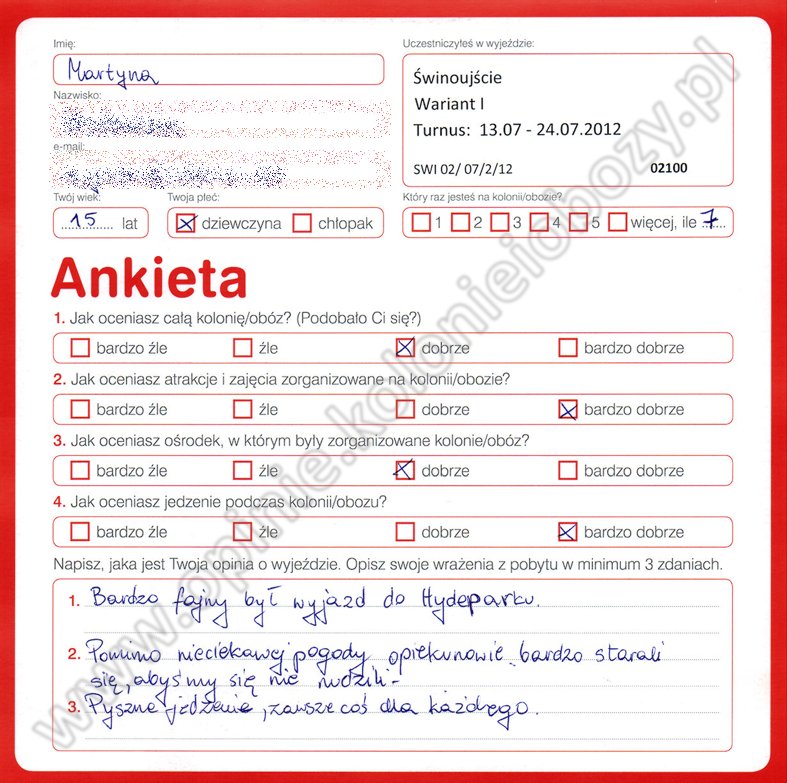 Imię:
Martyna
Nazwisko:
e-mail:
Twój wiek:
15 lat
Twoja płeć:
dziewczyna chłopak
Uczestniczyłeś w wyjeździe:
Świnoujście
Wariant I
Turnus: 13.07 - 24.07.2012
SWI 02/ 07/2/12 02100
Który raz jesteś na kolonii/obozie?
1 2 3 4 5 więcej, ile 7
Ankieta
1. Jak oceniasz całą kolonię/obóz? (Podobało Ci się?)
bardzo źle źle dobrze bardzo dobrze
2. Jak oceniasz atrakcje i zajęcia zorganizowane na kolonii/obozie?
bardzo źle źle dobrze bardzo dobrze
3. Jak oceniasz ośrodek, w którym były zorganizowane kolonie/obóz?
bardzo źle źle dobrze bardzo dobrze
4. Jak oceniasz jedzenie podczas kolonii/obozu?
bardzo źle źle dobrze bardzo dobrze
Napisz, jaka jest Twoja opinia o wyjeździe. Opisz swoje wrażenia z pobytu w minimum 3 zdaniach.
1. Bardzo fajny był wyjazd do Hydeparku.
2. Pomimo nieciekawej pogody opiekunowie bardzo starali
się, abyśmy się nie nudzili.
3. Pyszne jedzenie, zawsze coś dla każdego.
www.opinie.kolonieiobozy.pl